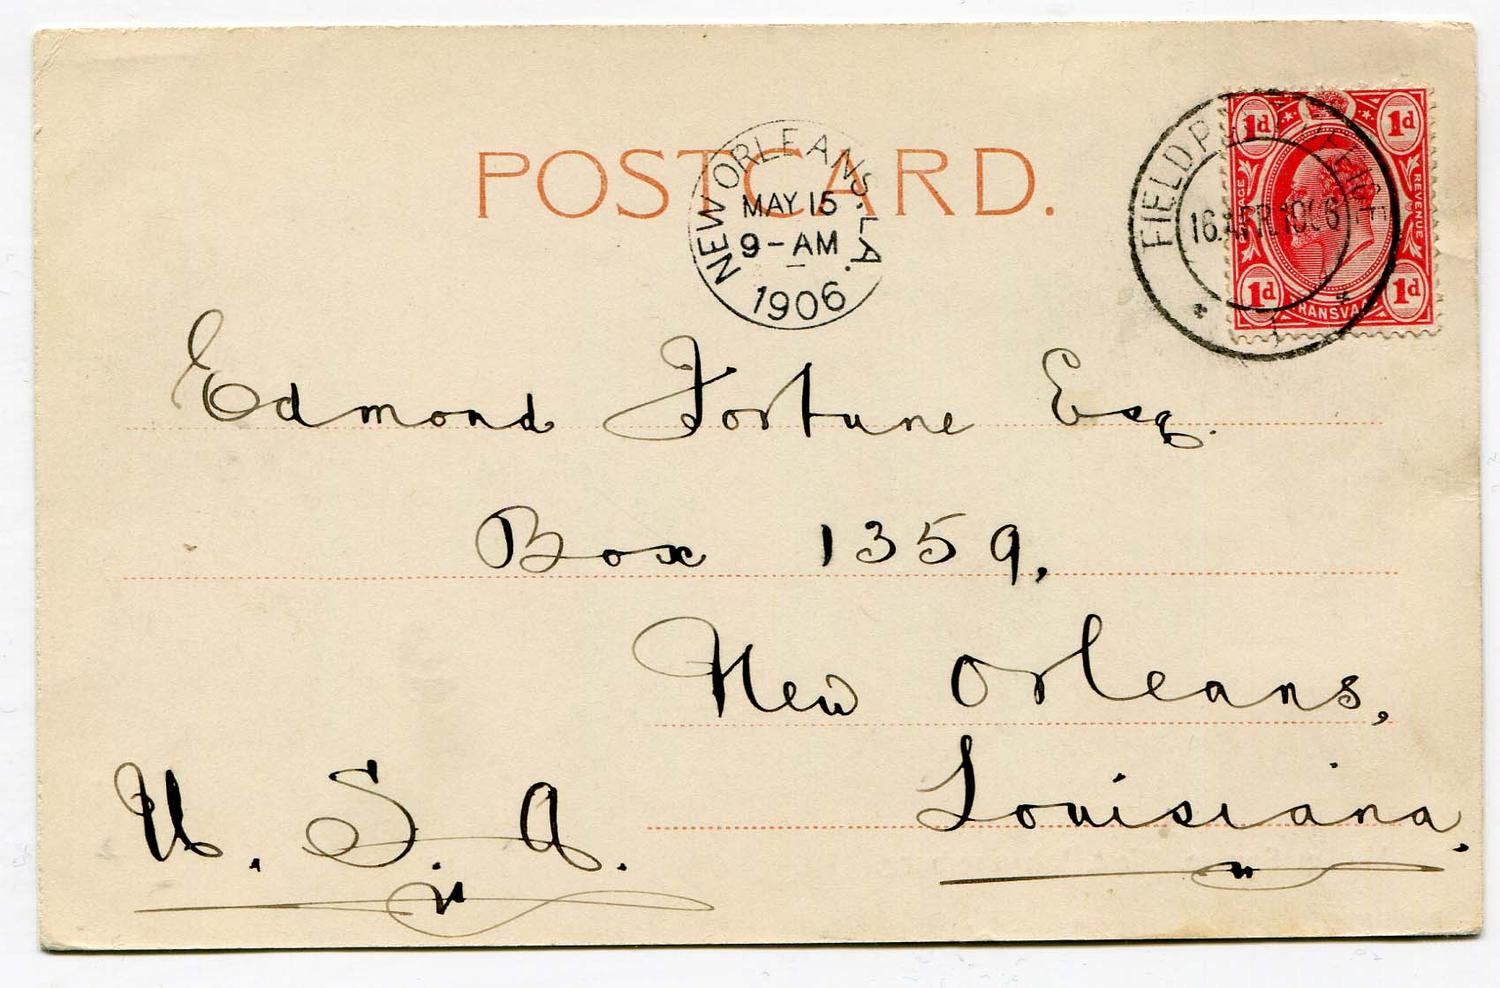 POSTCARD.
NEW ORLEANS, LA.
MAY 15
9-AM
1906
16.APR.1906
1d 1d
POSTAGE REVENUE
1d 1d
TRANSVAAL
Edmond Fortune Esq.
Box 1359,
New Orleans,
Louisiana.
U. S. A.